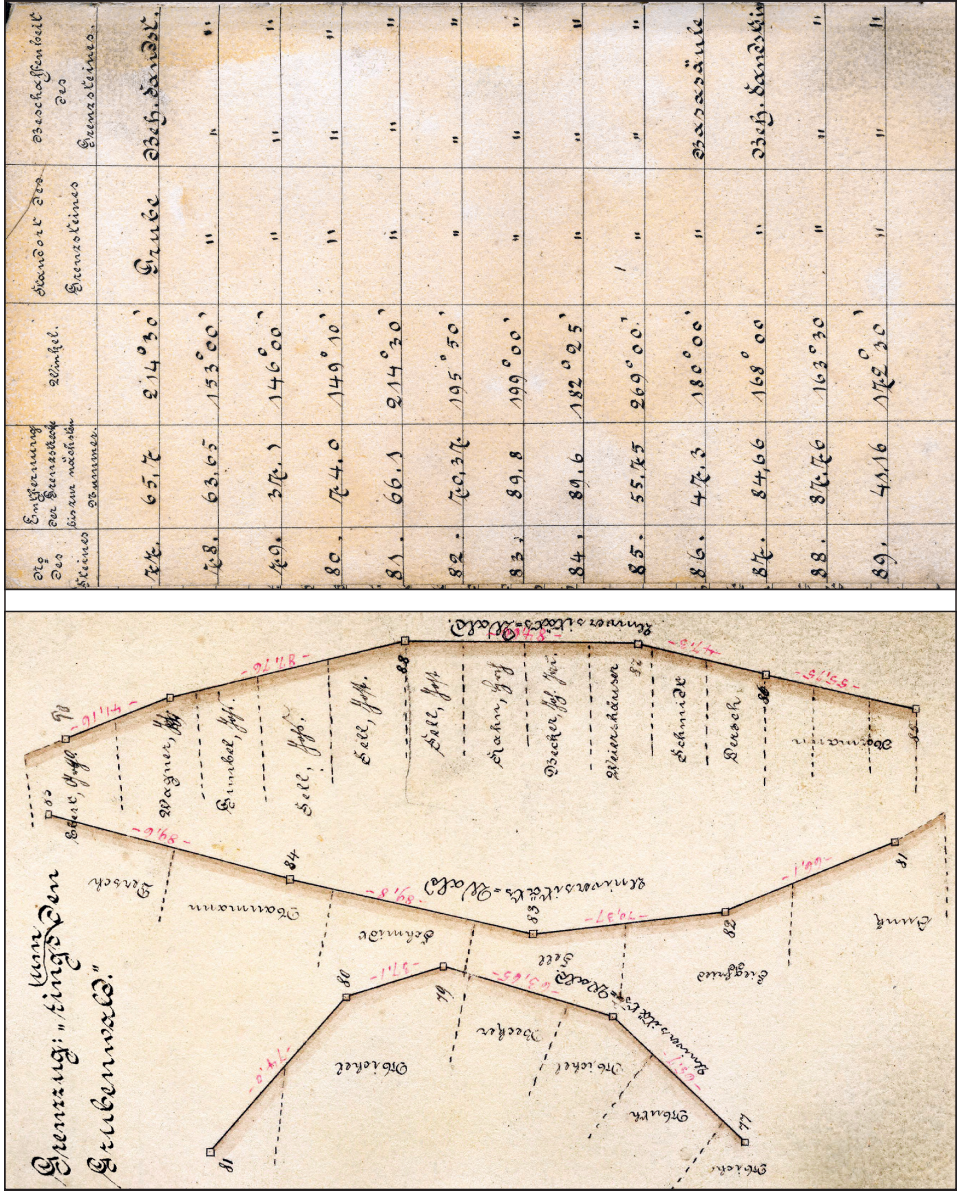 No des Steines
Entfernung der Grenzstrecke bis zur nächsten Nummer.
Winkel.
Standort des Grenzsteines
Beschaffenheit des Grenzsteines.
77. 65.7 214°30' Grube Beh. Sandst.
78. 63,65 153°00' " " "
79. 37.1 146°00' " " "
80. 74.0 149°10' " " "
81. 66.1 214°30' " " "
82. 70,37. 195°50' " " "
83. 89.8 199°00' " " "
84. 89.6 182°25' " " "
85. 55.75 269°00' " " "
86. 47.3 180°00' " Basasäule
87. 84,66 168°00 " Beh. Sandstein
88. 87.76 163°30 " " "
89. 41,16 172°30' " " "
Grenzzug: "rings um den
Grubenwald."
90
-41,16-
-87,76-
88
87
-47,3-
86
-55,75-
85
Universitäts=Wald.
Ebert,
Wagner,
Gumbel, Jph.
Sell, Johs.
Sell, Jost.
Sell, Jost
Hahn,
Becker, Joh.
Weiershäuser
Schmidt
Dersch,
Naumann
85
-89,6-
84
-89,8-
83
-70,37-
82
-66,1-
81
Universitäts=Wald
Dersch
Naumann
Schmidt
Sell
Siegfried
Junk
81
-74,0-
80
-37,1-
79
-63,65-
-65,7-
77
Universitäts=Wald.
Michel
Becker
Michel
Muth
Mich